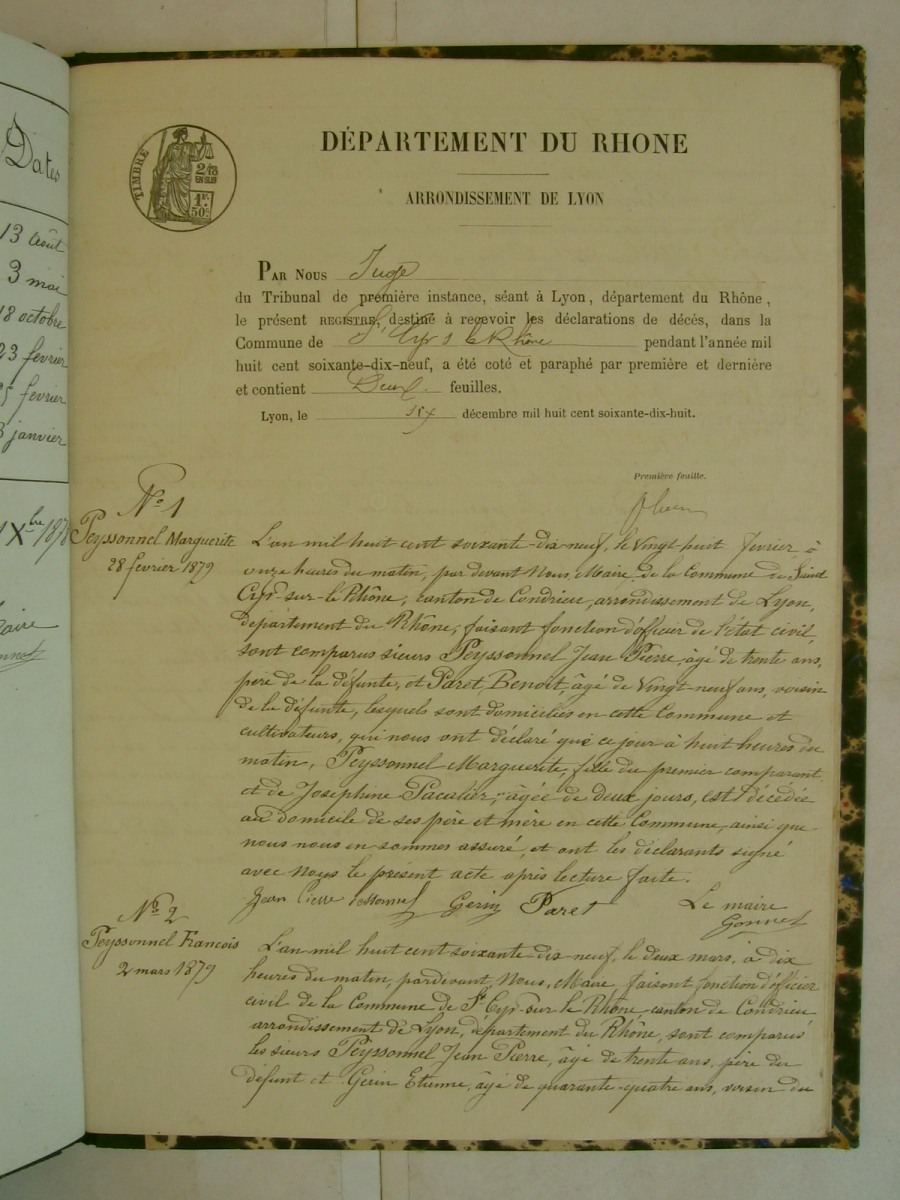 Dates
13 août
3 mai
18 octobre
23 fevrier
25 fevrier
3 janvier
Xbre 1878
TIMBRE
2/10
EN SUS
1F.
50c.
DÉPARTEMENT DU RHONE
ARRONDISSEMENT DE LYON
PAR NOUS Juge
du Tribunal de première instance, séant à Lyon, département du Rhône,
le présent REGISTRE, destiné à recevoir les déclarations de décés, dans la
Commune de St Cyr s le Rhône pendant l'année mil
huit cent soixante-dix-neuf, a été coté et paraphé par première et dernière
et contient Deux feuilles.
Lyon, le six décembre mil huit cent soixante-dix-huit.
Première feuille.
No 1
Peyssonnel Marguerite
28 fevrier 1879
L'an mil huit cent soixante-dix-neuf, le vingt huit fevrier, à
onze heures du matin, par devant Nous, Maire de la Commune de Saint
Cyr-sur-le Rhône, canton de Condrieu, arrondissement de Lyon,
département du Rhône, faisant fonction d'officier de l'état civil,
sont comparus sieurs Peyssonnel Jean Pierre, âgé de trente ans,
père de la défunte, et Paret Benoit, âgé de Vingt-neuf ans, voisin
de la défunte, lesquels sont domiciliés en cette Commune et
cultivateurs, qui nous ont déclaré que ce jour à huit heures du
matin, Peyssonnel Marguerite, fille du premier comparant,
et de Joséphine Pacalier, âgée de deux jours, est décédée
au domicile de ses père et mère en cette Commune, ainsi que
nous nous en sommes assuré, et ont les déclarants signé
avec Nous le présent acte après lecture faite.
Jean Pierre Gerin Paret Le maire
Gonnet
No 2
Peyssonnel Francois
2 mars 1879
L'an mil huit cent soixante dix neuf, le deux mars, à dix
heures du matin, pardevant Nous, Maire, faisant fonction d'officier
civil de la Commune de St Cyr-sur le Rhône, canton de Condrieu
arrondissement de Lyon, département du Rhône, sont comparus
les sieurs Peyssonnel Jean Pierre, âgé de trente ans, père du
défunt et Gerin Etienne, âgé de quarante-quatre ans, voisin du